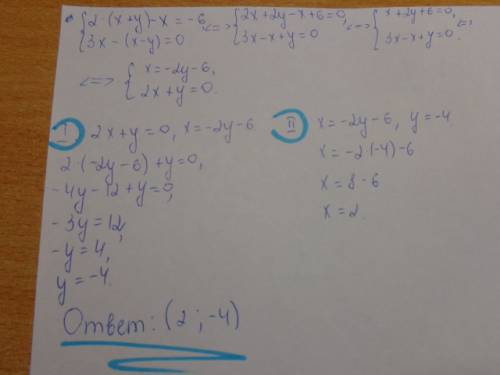 {2·(x+y)-x=-6, <=> {2x+2y-x+6=0, <=> {x+2y+6=0, <=>
{3x-(x-y)=0 {3x-x+y=0 {3x-x+y=0.
<=> {x=-2y-6,
{2x+y=0.
I 2x+y=0, x=-2y-6
2·(-2y-6)+y=0,
-4y-12+y=0,
-3y=12,
-y=4,
y=-4.
II x=-2y-6, y=-4
x=-2·(-4)-6
x=8-6
x=2.
Ответ: (2;-4)